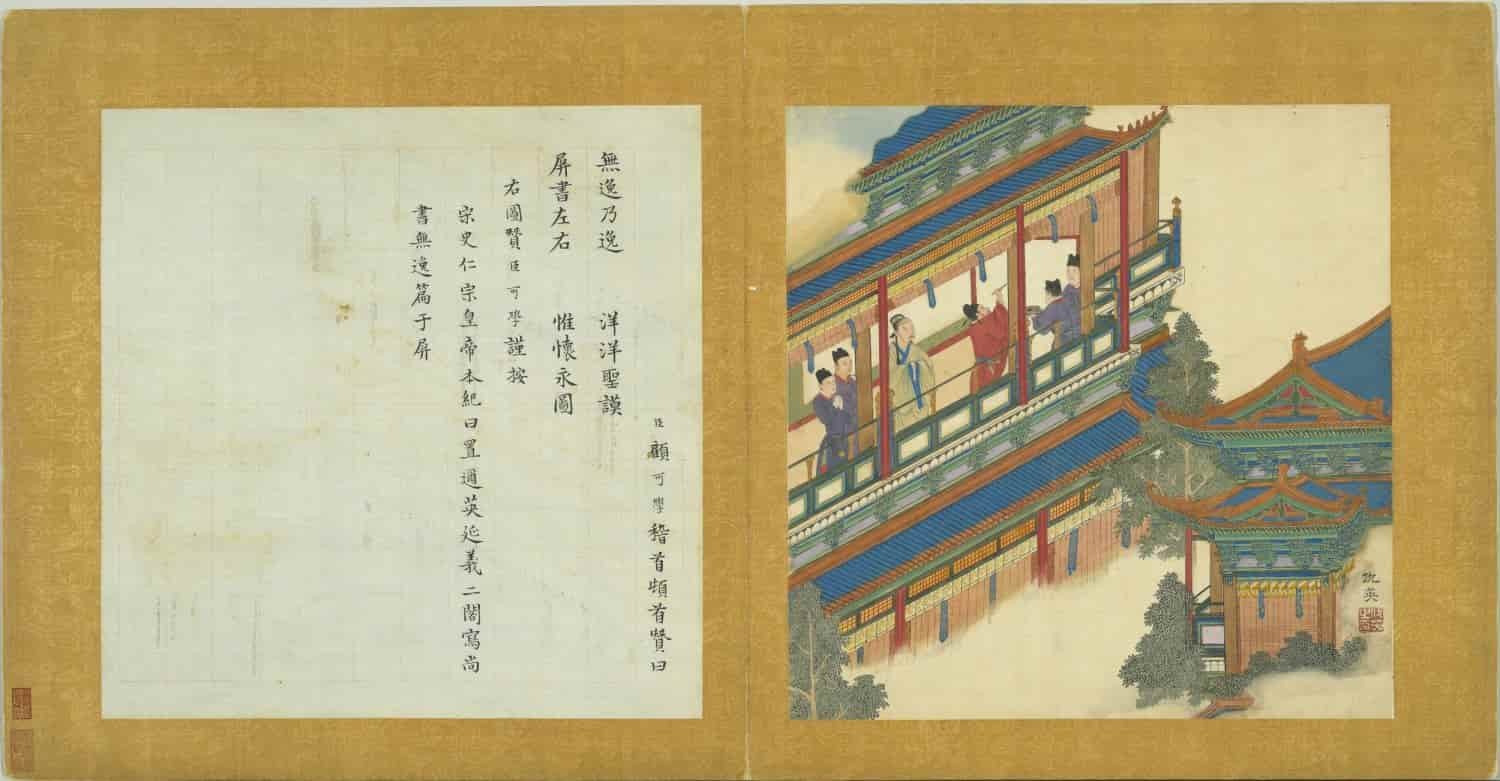 仇英
臣顧可學稽首頓首賛曰
無逸乃逸　洋洋聖謨
屏書左右　惟懷永圖
右圖賛臣可學謹按
宋史仁宗皇帝本紀曰置邇英延義二閣寫尚
書無逸篇于屏